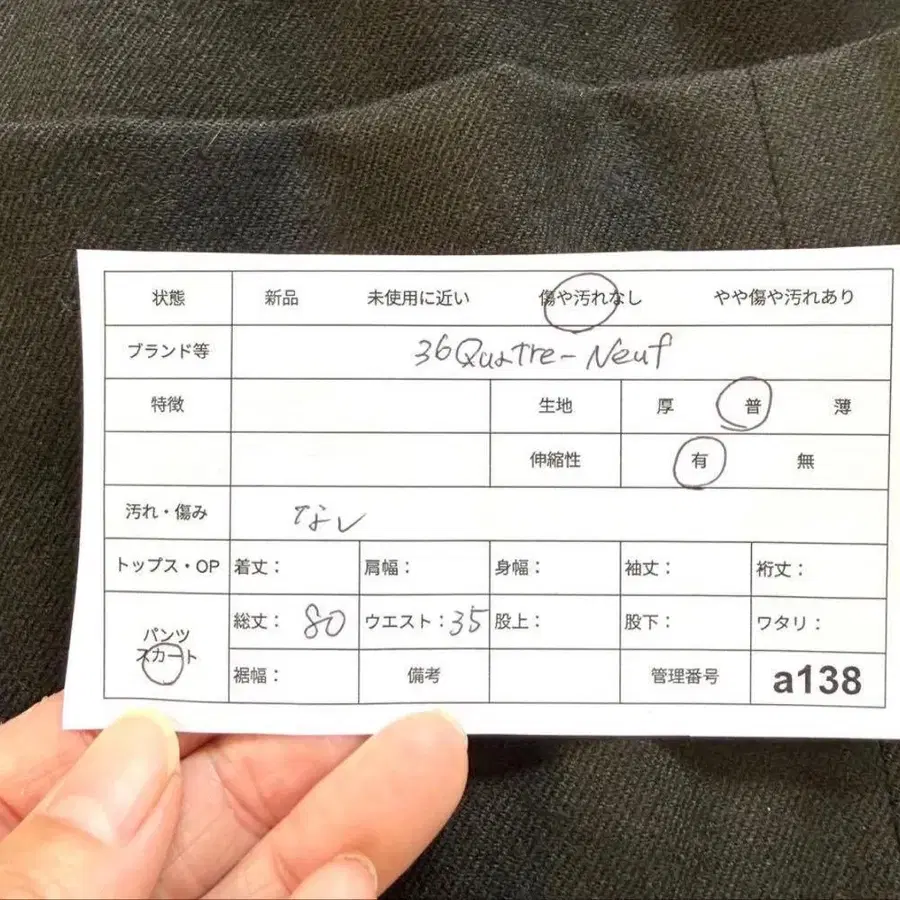 状態 新品 未使用に近い 傷や汚れなし やや傷や汚れあり
ブランド等 36Quatre-Neuf
特徴 生地 厚 普 薄
伸縮性 有 無
汚れ・傷み なし
トップス・OP 着丈: 肩幅: 身幅: 袖丈: 裄丈:
パンツ
スカート
総丈: 80 ウエスト:35 股上: 股下: ワタリ:
裾幅: 備考 管理番号 a138